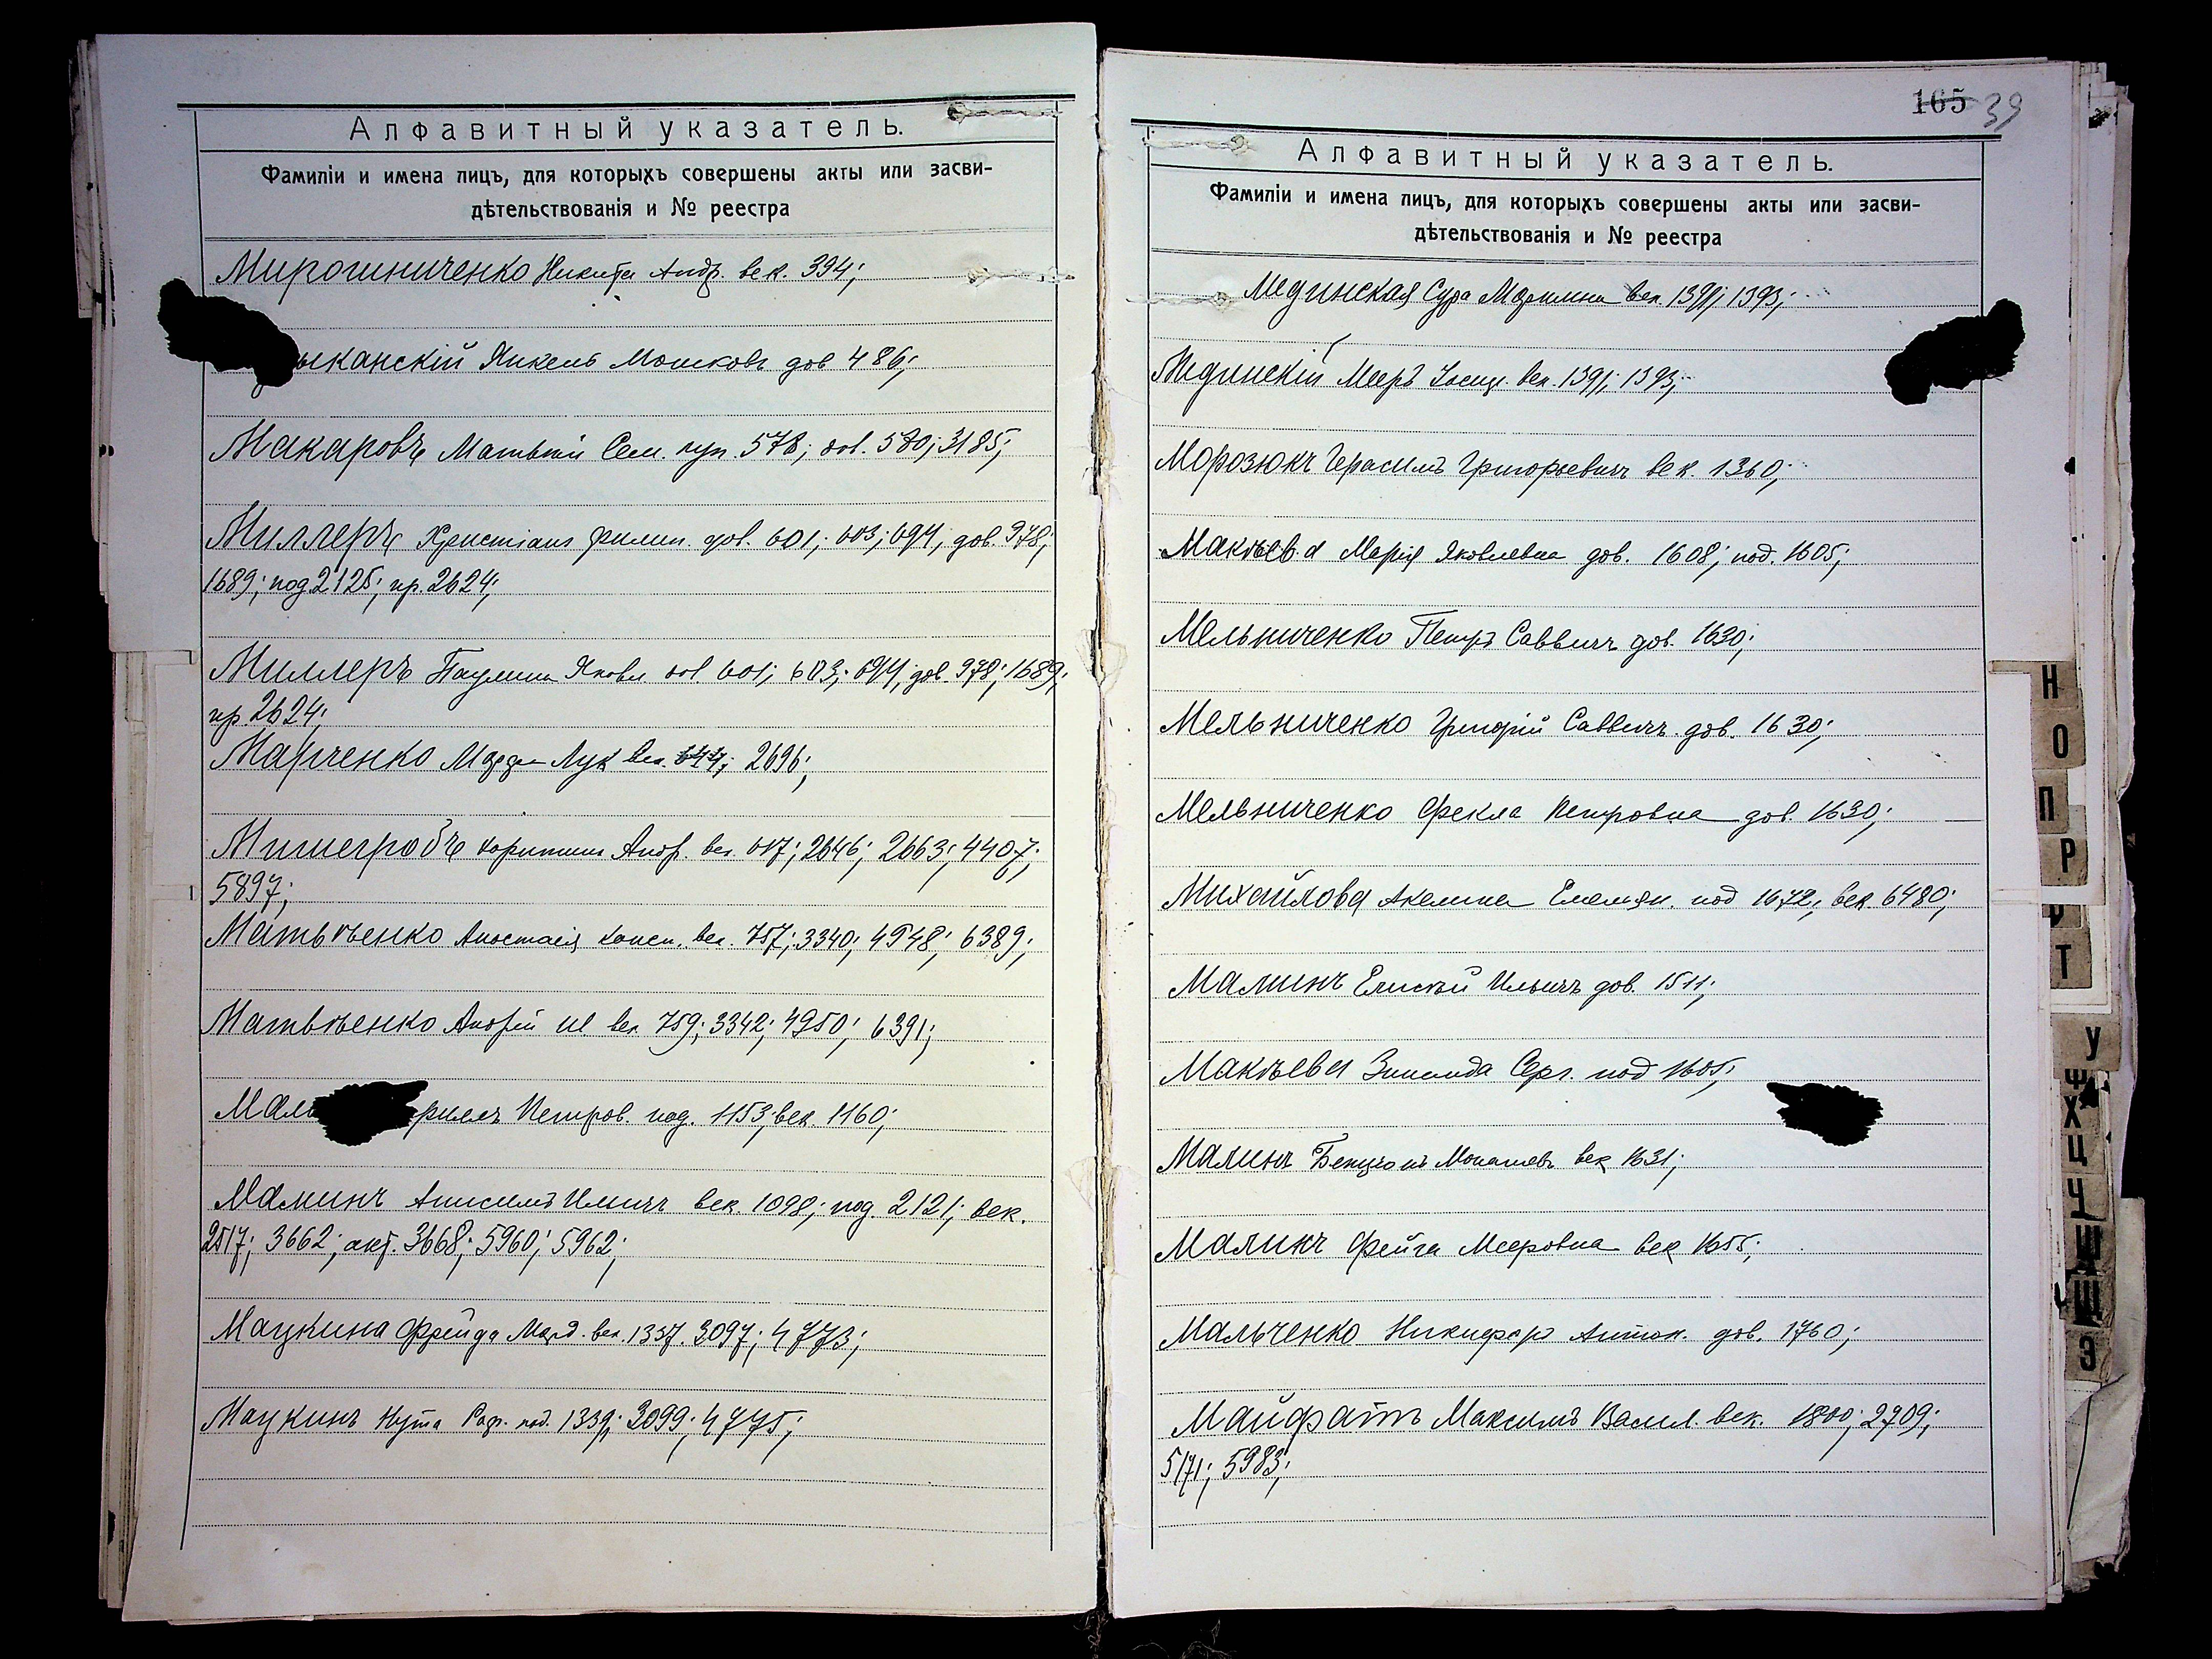 Алфавитный указатель.
Фамиліи и имена лицъ, для которыхъ совершены акты или засви-
дѣтельствованія и № реестра
Мирошниченко Никита Андр. век. 394;
ыканскій Янкель Мошковъ дов 486;
Макаровъ Матвѣй Сем. куп. 578; дов. 580; 3185;
Миллеръ Христіанъ Филип. дов. 601; 603; 694; дов. 978;
1689; под. 2125; пр. 2624;
Миллеръ Паулина Яковл. дов. 601; 603; 694; дов. 978; 1689;
пр. 2624;
Марченко Лук. век. 2696;
Мишегробъ Андр. век. 617; 2646; 2663; 4407;
5897;
Матвѣенко Анастасія век. 757; 3340; 4948; 6389;
Матвѣенко Андрей век. 759; 3342; 4950; 6391;
Мал рилъ Петров. под. 1153; век. 1160;
Малинъ Анисимъ Ильичъ век. 1098; под. 2121; век.
2517; 3662; акт. 3668; 5960; 5962;
Мацкина Фрейда Морд. век. 1337. 3097; 4773;
Мацкинъ Нута под. 1339; 3099; 4775;
165 39
Алфавитный указатель.
Фамиліи и имена лицъ, для которыхъ совершены акты или засви-
дѣтельствованія и № реестра
Мединская Сура век. 1391; 1393;
Мединскій Мееръ век. 1391; 1393;
Морозюкъ Герасимъ Григорьевичъ век. 1360;
Макѣева Марія Яковлевна дов. 1608; под. 1605;
Мельниченко Петръ Саввичъ дов. 1630;
Мельниченко Григорій Саввичъ дов. 1630;
Мельниченко Фекла Петровна дов. 1630;
Михайлова Акелина Емельян. под 1672; век. 6480;
Малинъ Елисѣй Ильичъ дов. 1511;
Макѣева Зинаида Серг. под 1605;
Малинъ Бенціонъ век 1631;
Малинъ Фейга Мееровна век 1655;
Мальченко Никифоръ Антон. дов. 1760;
Майфатъ Максимъ Васил. век. 1800; 2709;
5171; 5983;
Н
О
П
Р
Т
У
Ф
Х
Ц
Ч
Щ
Э